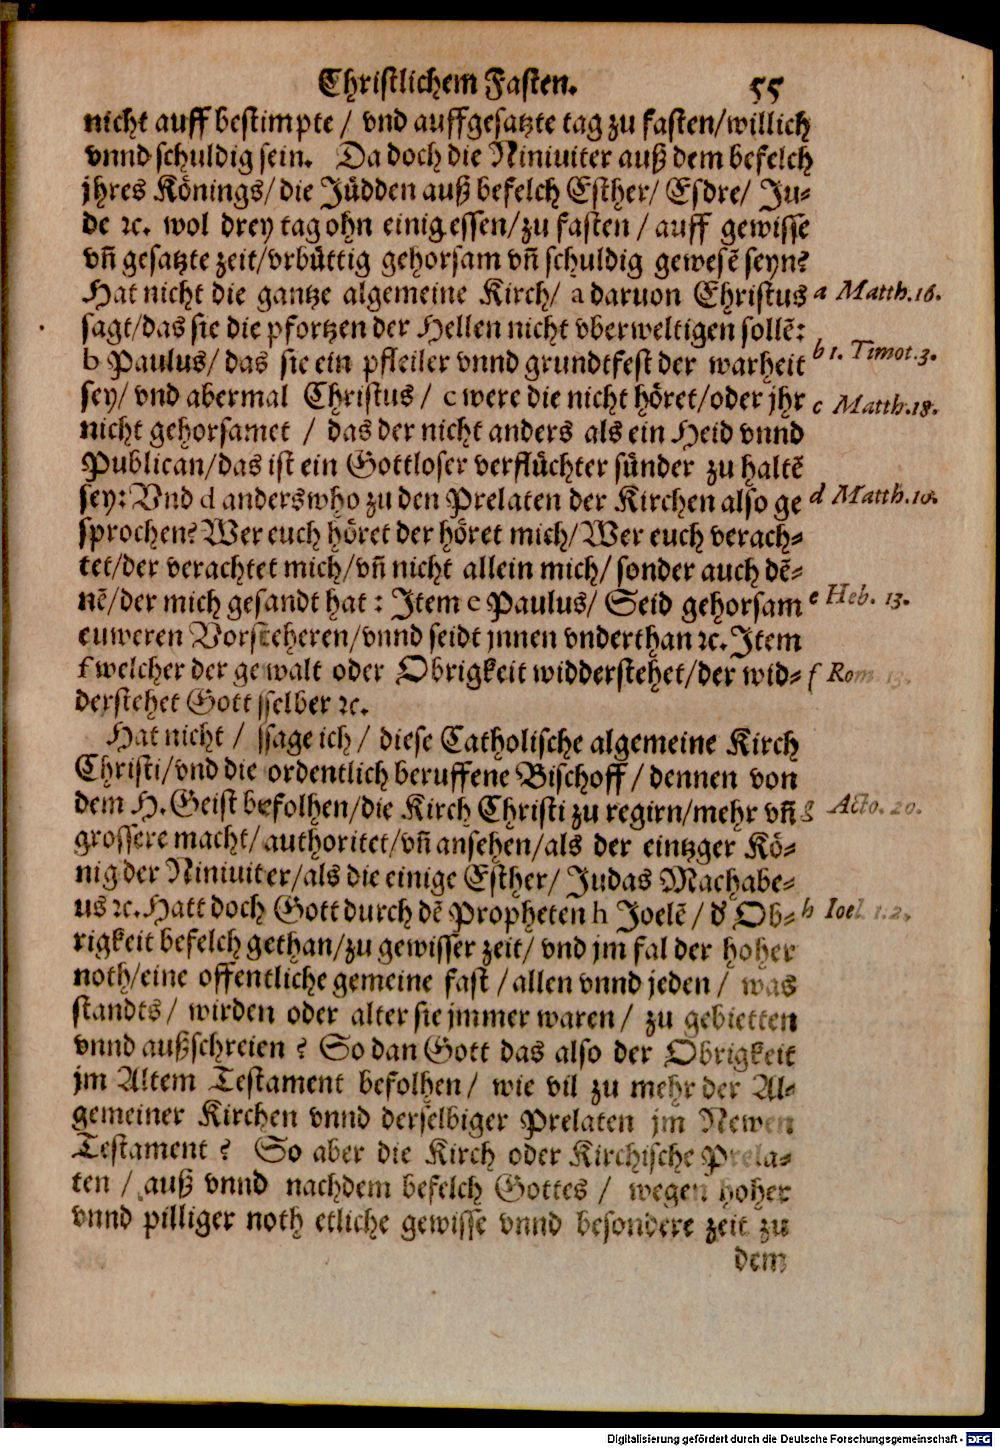 Christlichem Fasten. 55
nicht auff bestimpte / vnd auffgesatzte tag zu fasten/willich
vnnd schuldig sein. Da doch die Niniuiter auß dem befelch
jhres Königs/ die Jüdden auß befelch Esther/ Esdre/ Ju-
de ꝛc. wol drey tag ohn einig essen/zu fasten / auff gewisse
vñ gesatzte zeit/vrbüttig gehorsam vñ schuldig gewesẽ seyn?
Hat nicht die gantze algemeine Kirch/ a daruon Christus a Matth.16.
sagt/das sie die pfortzen der Hellen nicht vberweltigen sollẽ:
b Paulus/ das sie ein pfleiler vnnd grundtfest der warheit b 1. Timot.3.
sey/ vnd abermal Christus / c were die nicht höret/oder jhr c Matth.18.
nicht gehorsamet / das der nicht anders als ein Heid vnnd
Publican/das ist ein Gottloser verflüchter sünder zu haltẽ
sey: Vnd d anderswho zu den Prelaten der Kirchen also ge d Matth.10.
sprochen? Wer euch höret der höret mich/ Wer euch verach-
tet/der verachtet mich/vñ nicht allein mich/ sonder auch dẽ-
nẽ/der mich gesandt hat : Item e Paulus/ Seid gehorsam e Heb. 13.
euweren Vorsteheren/vnnd seidt jnnen vnderthan ꝛc. Item
f welcher der gewalt oder Obrigkeit widderstehet/der wid- f Rom 13.
derstehet Gott sselber ꝛc.
Hat nicht / ssage ich / diese Catholische algemeine Kirch
Christi/vnd die ordentlich beruffene Bischoff / dennen von
dem H. Geist befolhen/die Kirch Christi zu regirn/mehr vñ g Acto. 20.
grossere macht/ authoritet/vñ ansehen/als der eintzger Kö-
nig der Niniuiter/als die einige Esther/ Judas Machabe-
us ꝛc. Hatt doch Gott durch dẽ Propheten h Joelẽ / d' Ob- h Ioel 1.2.
rigkeit befelch gethan/zu gewisser zeit/ vnd jm fal der hoher
noth/eine offentliche gemeine fast / allen vnnd jeden / was
standts / wirden oder alter sie jmmer waren / zu gebietten
vnnd außschreien ? So dan Gott das also der Obrigkeit
jm Altem Testament befolhen / wie vil zu mehr der Al-
gemeiner Kirchen vnnd derselbiger Prelaten jm Newen
Testament ? So aber die Kirch oder Kirchische Prela-
ten / auß vnnd nachdem befelch Gottes / wegen hoher
vnnd pilliger noth etliche gewisse vnnd besondere zeit zu
dem
Digitalisierung gefördert durch die Deutsche Forschungsgemeinschaft - DFG